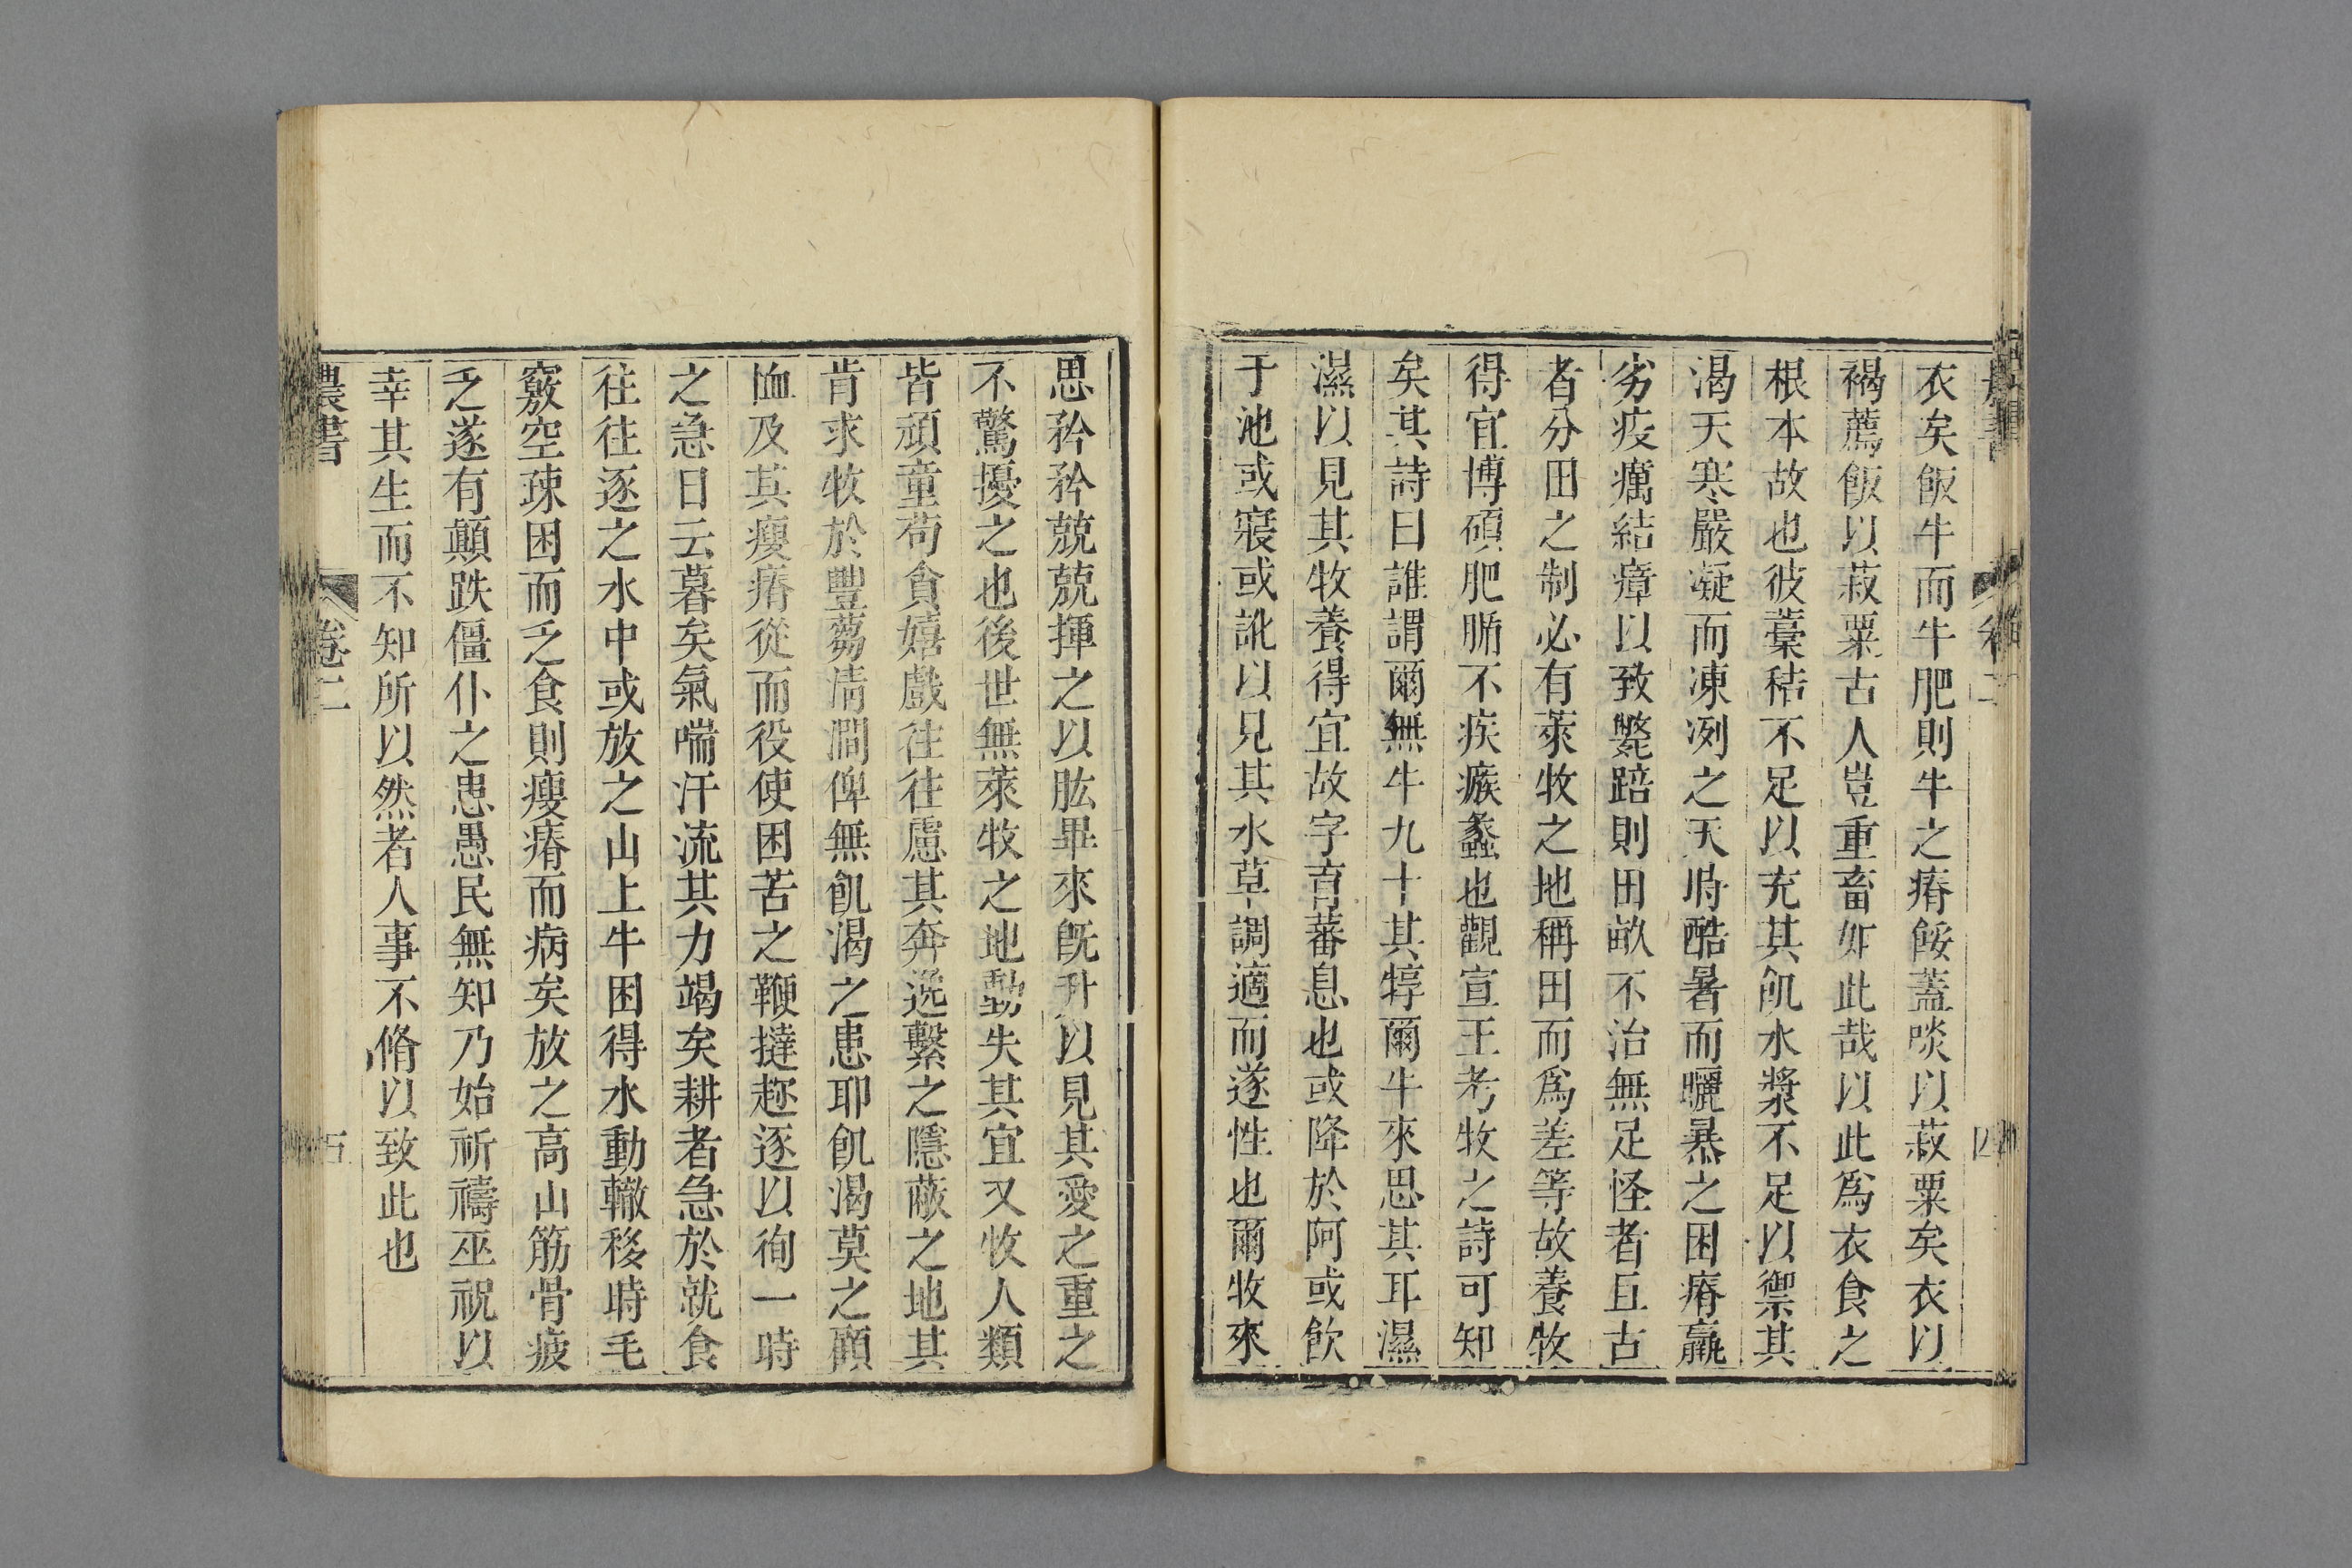 衣矣飯牛而牛肥則牛之瘠餒蓋啖以菽粟矣衣以
褐薦飯以菽粟古人豈重畜如此哉以此爲衣食之
根本故也彼藁秸不足以充其飢水漿不足以禦其
渴天寒嚴凝而凍冽之天時酷暑而曬暴之困瘠羸
劣疫癘結瘴以致斃踣則田畝不治無足怪者且古
者分田之制必有萊牧之地稱田而爲差等故養牧
得宜博碩肥腯不疾瘯蠡也觀宣王考牧之詩可知
矣其詩曰誰謂爾無牛九十其犉爾牛來思其耳濕
濕以見其牧養得宜故字育蕃息也或降於阿或飲
于池或寢或訛以見其水草調適而遂性也爾牧來
思矜矜兢兢揮之以肱畢來旣升以見其愛之重之
不驚擾之也後世無萊牧之地動失其宜又牧人類
皆頑童苟貪嬉戲往往慮其奔逸繫之隱蔽之地其
肯求牧於豐蒭清澗俾無飢渴之患耶飢渴莫之顧
恤及其瘦瘠從而役使困苦之鞭撻趂逐以徇一時
之急日云暮矣氣喘汗流其力竭矣耕者急於就食
往往逐之水中或放之山上牛困得水動輒移時毛
竅空疎困而乏食則瘦瘠而病矣放之高山筋骨疲
乏遂有顚跌僵仆之患愚民無知乃始祈禱巫祝以
幸其生而不知所以然者人事不脩以致此也
農書 卷二 五